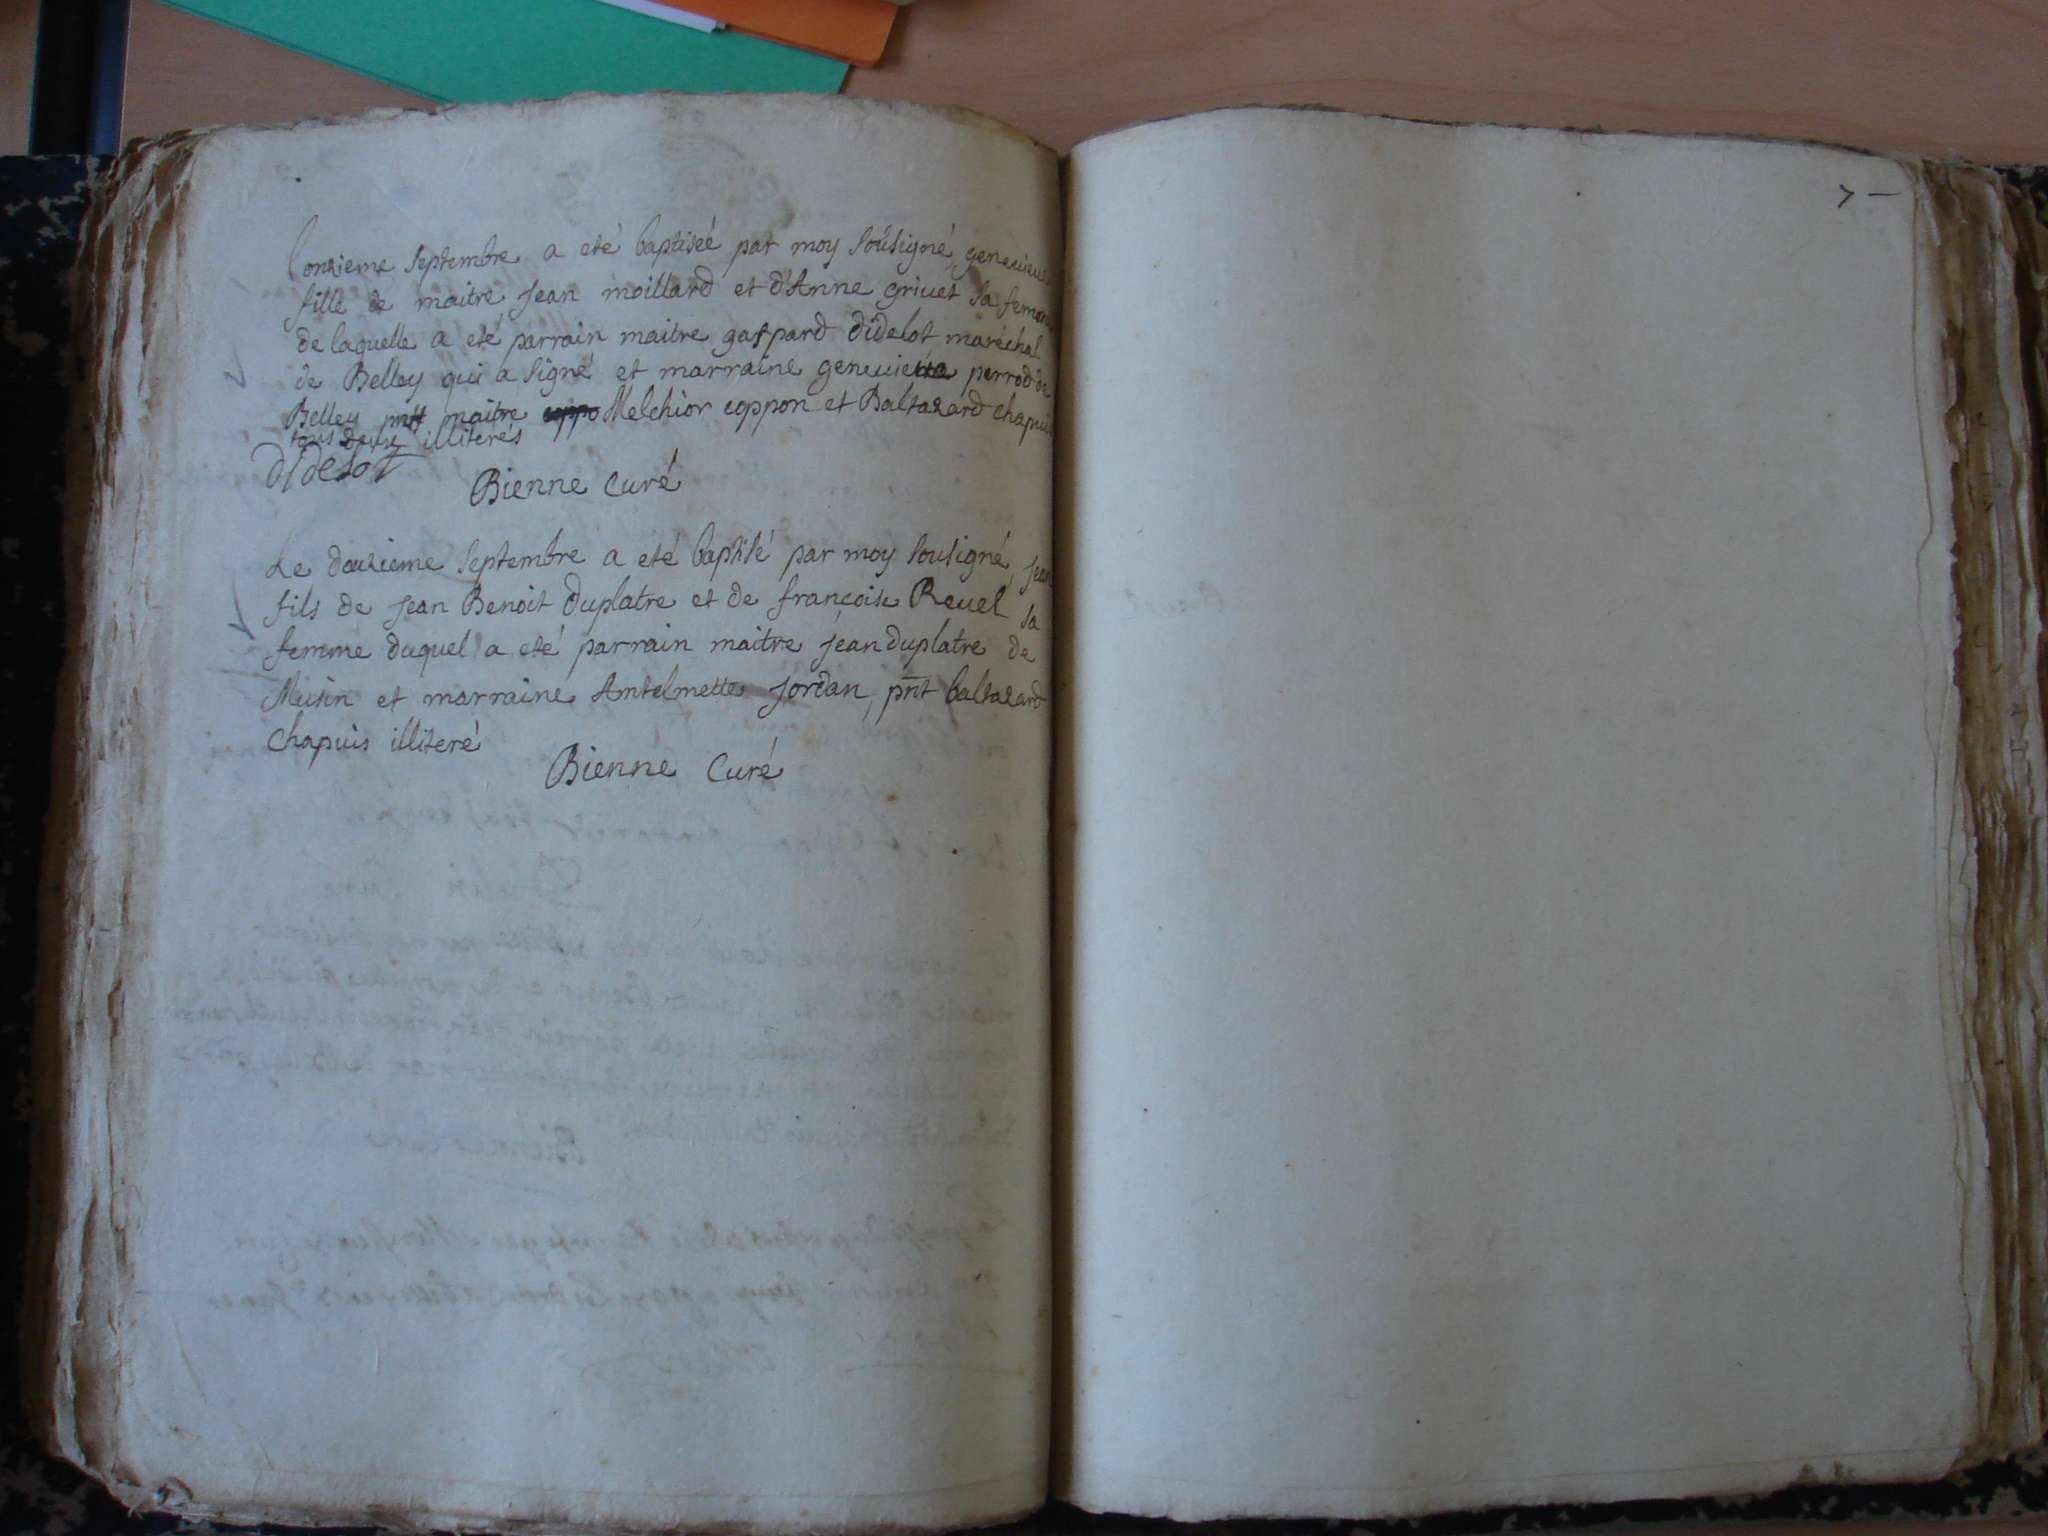 7 -
l'onzieme septembre a eté baptiseé par moy sousigné, genevieve
fille de maitre jean moillard et d'Anne grivet sa femme
de laquelle a eté parrain maitre gaspard didelot maréchal
de Belley qui a signé et marraine genevieve perrod de
Belley pnt maitre coppo Melchior coppon et Baltazard chapuis
tous deux illiterés
didelot
Bienne Curé
Le douzieme septembre a eté baptisé par moy sousigné, jean
fils de jean Benoit Duplatre et de françoise Revel sa
femme duquel a eté parrain maitre jean duplatre de
Musin et marraine Antelmette jordan, pnt baltazard
chapuis illiteré
Bienne Curé